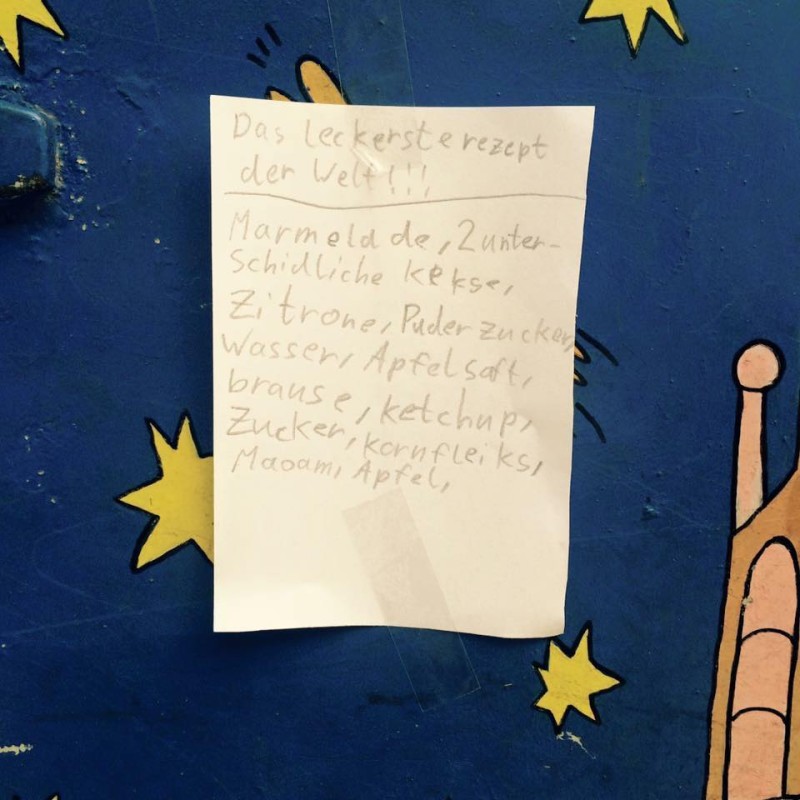 Das leckerste rezept
der Welt!!!
Marmeldde, 2 unter-
schidliche kekse,
Zitrone, Puderzucker,
Wasser, Apfelsaft,
brause, ketchup,
Zucker, kornfleiks,
Maoam, Apfel,